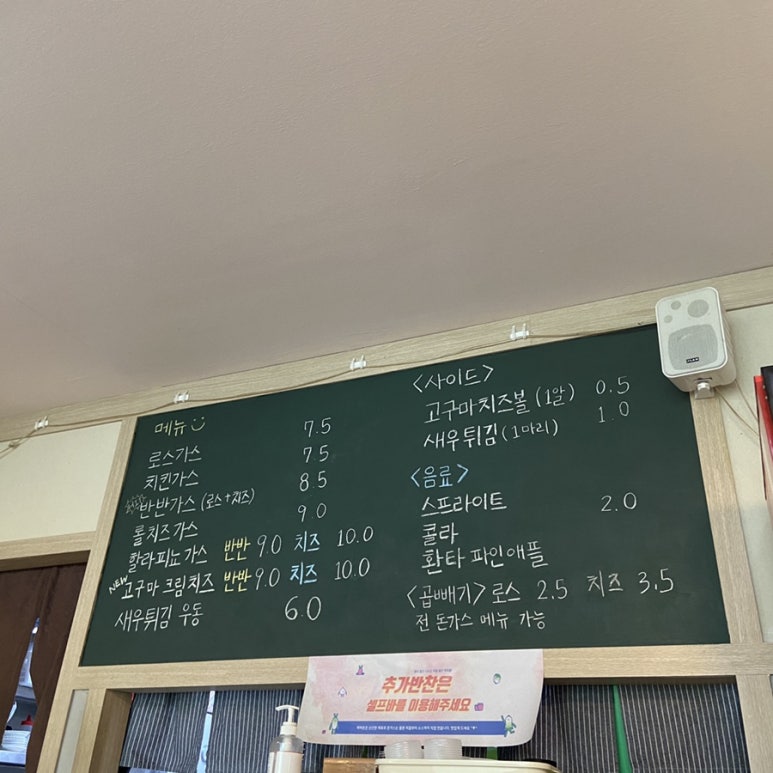 메뉴
로스가스 7.5
치킨가스 7.5
반반가스 (로스+치즈) 8.5
롤치즈가스 9.0
할라피뇨가스 반반 9.0 치즈 10.0
NEW 고구마 크림치즈 반반 9.0 치즈 10.0
새우튀김 우동 6.0
<사이드>
고구마치즈볼 (1알) 0.5
새우튀김 (1마리) 1.0
<음료>
스프라이트 2.0
콜라
환타 파인애플
<곱빼기> 로스 2.5 치즈 3.5
전 돈가스 메뉴 가능
추가반찬은
셀프바를 이용해주세요